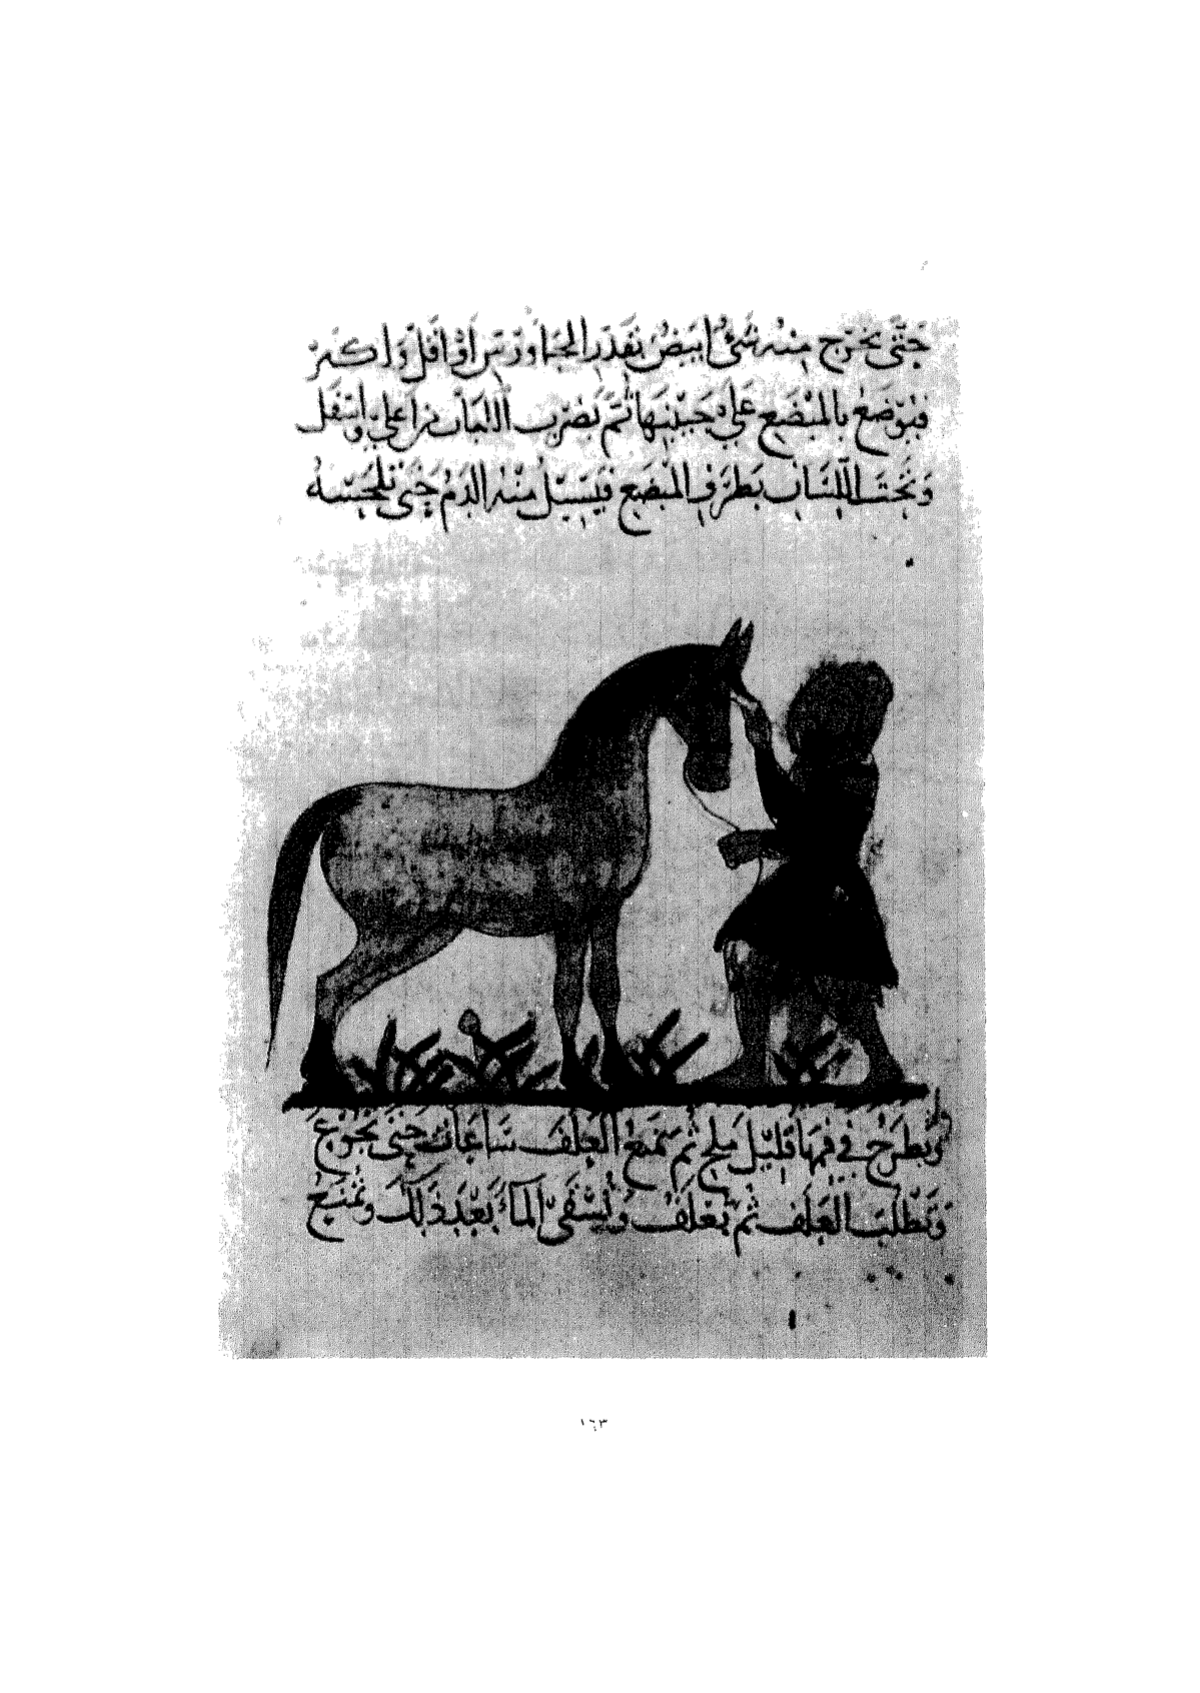 حَتَّى يَخرُج مِنْهُ شَئٌ ابيَضُ بِقَدَرِ الجَاوَرْسِ اَوْ اَقَلّ وَاكثَر
بِالمِبْضَعِ عَلَى جَبِيْنِهَا ثُمَّ يُضْرَب
اللِّسَان بِطَرَفِ المِبْضَعِ فَيَسِيْلُ مِنْهُ الدَمُ حَتَّى تَلْحَسهُ
وَيُطرَحُ فِي فَمِهَا قَلِيْل مِلحٍ ثُمَّ تمنَعُ العَلَفَ سَاعَات حَتَّى تَجُوْعَ
وَتَطْلبَ العَلَف ثُمّ تُعْلَفُ وَتُسْقَى المَآءَ بَعْدَ ذَلِكَ وَتُمنَعُ
١٦٣